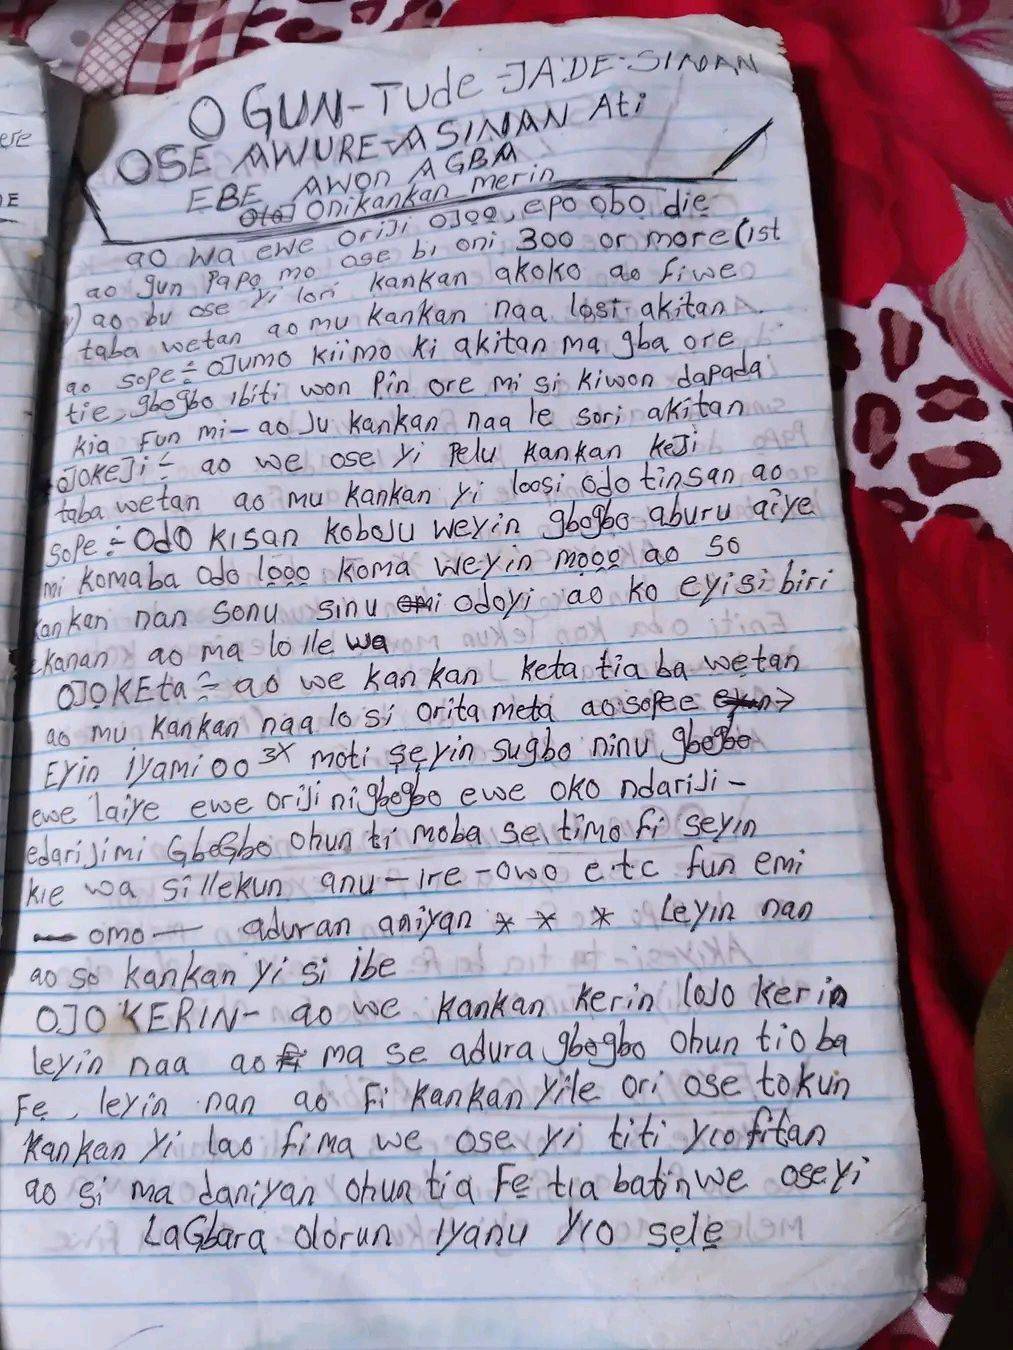 OGUN-Tude-JADE-SINAN
OSE AWURE-ASINAN Ati
EBE AWON AGBA
Onikankan merin
ao wa ewe oriji ojoo, epo obo die
ao gun Papo mo ose bi oni 300 or more (ist
ao bu ose yi lori kankan akoko ao fiwe
taba wetan ao mu kankan naa losi akitan
ao sope÷ OJUMO kiimo ki akitan ma gba ore
tie, gbogbo ibiti won Pin ore mi si kiwon dapada
kia Fun mi- ao Ju kankan naa le sori akitan
OJOKEJI÷ ao we ose yi Pelu kankan keji
taba wetan ao mu kankan yi loosi odo tinsan ao
sope÷ Odo kisan koboju weyin gbogbo aburu aiye
mi komaba odo looo koma weyin mooo ao so
kankan nan sonu sinu odoyi ao ko eyi si biri
ekanan ao ma lo lle wa
OJOKEta÷ ao we kankan keta tia ba wetan
ao mu kankan naa lo si orita meta aosopee
Eyin iyami oo 3X moti seyin sugbo ninu gbogbo
ewe laiye ewe oriji nigbogbo ewe oko ndariji-
edarijimi GboGbo ohun ti moba se timo fi seyin
kie wa sillekun anu-ire-owo e.t.c fun emi
— omo — aduran aniyan * * * Leyin nan
ao so kankan yi si ibe
OJO KERIN- ao we kankan kerin lojo kerin
leyin naa ao ma se adura gbogbo ohun tio ba
Fe, leyin nan ao Fi kankan yile ori ose tokun
kankan yi lao fima we ose yi titi yio fi tan
ao si ma daniyan ohun tia Fe tia batinwe oseyi
LaGbara olorun iyanu yio sele